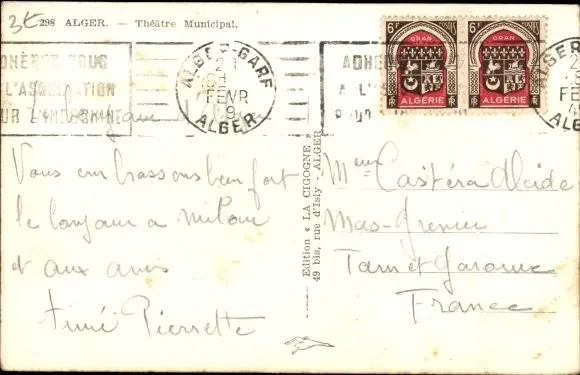 3€
298 ALGER. — Théâtre Municipal.
ADHÉREZ POUR
A L'ASSOCIATION
POUR L'INDOCHINE
ALGER-GARE
FEVR
ALGER
ADHÉ
A L'
POUR
6F POSTES
ORAN
RF
ALGÉRIE
6F POSTES
ORAN
RF
ALGÉRIE
ALGER
Vous embrassons bien fort
le bonjour a
et aux amis
Aimé Pierrette
Edition « LA CIGOGNE »
49 bis, rue d'Isly - ALGER
Mme Castéra Alcide
Mas-Grenier
Tarn et Garonne
France